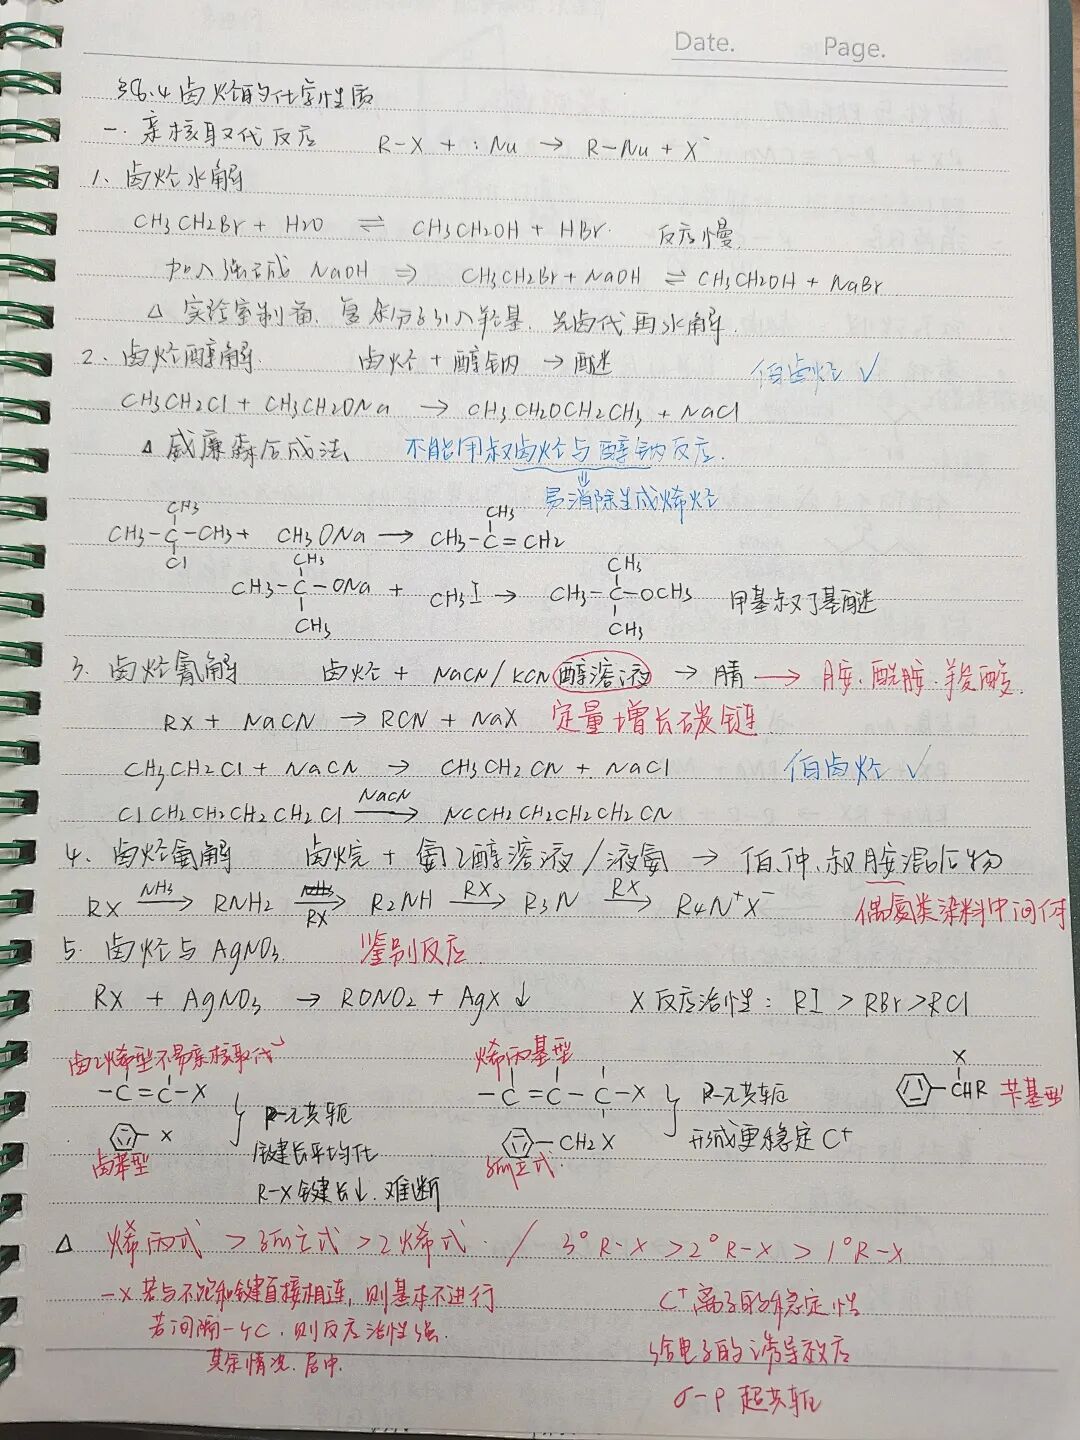 Date. Page.
§6.4 卤烃的化学性质
一. 亲核取代反应 R-X + :Nu → R-Nu + X⁻
1. 卤烃水解
CH3CH2Br + H2O ⇌ CH3CH2OH + HBr. 反应慢
加入强碱 NaOH ⇒ CH3CH2Br + NaOH ⇌ CH3CH2OH + NaBr
△ 实验室制备. 复杂分子引入羟基. 先卤代再水解.
2. 卤烃醇解. 卤烃 + 醇钠 → 醚 伯卤烃 ✓
CH3CH2Cl + CH3CH2ONa → CH3CH2OCH2CH3 + NaCl
△ 威廉森合成法 不能用叔卤烃与醇钠反应.
⇓
易消除生成烯烃
CH3 CH3
CH3-C-CH3 + CH3ONa → CH3-C=CH2
Cl
CH3 CH3
CH3-C-ONa + CH3I → CH3-C-OCH3 甲基叔丁基醚
CH3 CH3
3. 卤烃氰解 卤烃 + NaCN/KCN 醇溶液 → 腈 → 胺. 酰胺. 羧酸.
RX + NaCN → RCN + NaX 定量增长碳链
CH3CH2Cl + NaCN → CH3CH2CN + NaCl 伯卤烃 ✓
ClCH2CH2CH2CH2Cl NaCN → NCCH2CH2CH2CH2CN
4. 卤烃氨解 卤烷 + 氨乙醇溶液/液氨 → 伯、仲、叔胺混合物
RX NH3 → RNH2 RX → R2NH RX → R3N RX → R4N⁺X⁻ 偶氮类染料中间体
5. 卤烃与 AgNO3. 鉴别反应.
RX + AgNO3 → RONO2 + AgX↓ X反应活性: RI > RBr > RCl
卤乙烯型不易亲核取代 烯丙基型 X
-C=C-X -C=C-C-X CHR 苄基型
P-π共轭 P-π共轭
X 键长平均化 CH2X 形成更稳定 C⁺
卤苯型 R-X 键长↓. 难断
△ 烯丙式 > 孤立式 > 乙烯式. / 3° R-X > 2° R-X > 1° R-X
-X 若与不饱和键直接相连, 则基本不进行 C⁺离子的稳定性
若间隔一个C. 则反应活性强. 给电子的诱导效应
其余情况. 居中. σ-P 超共轭